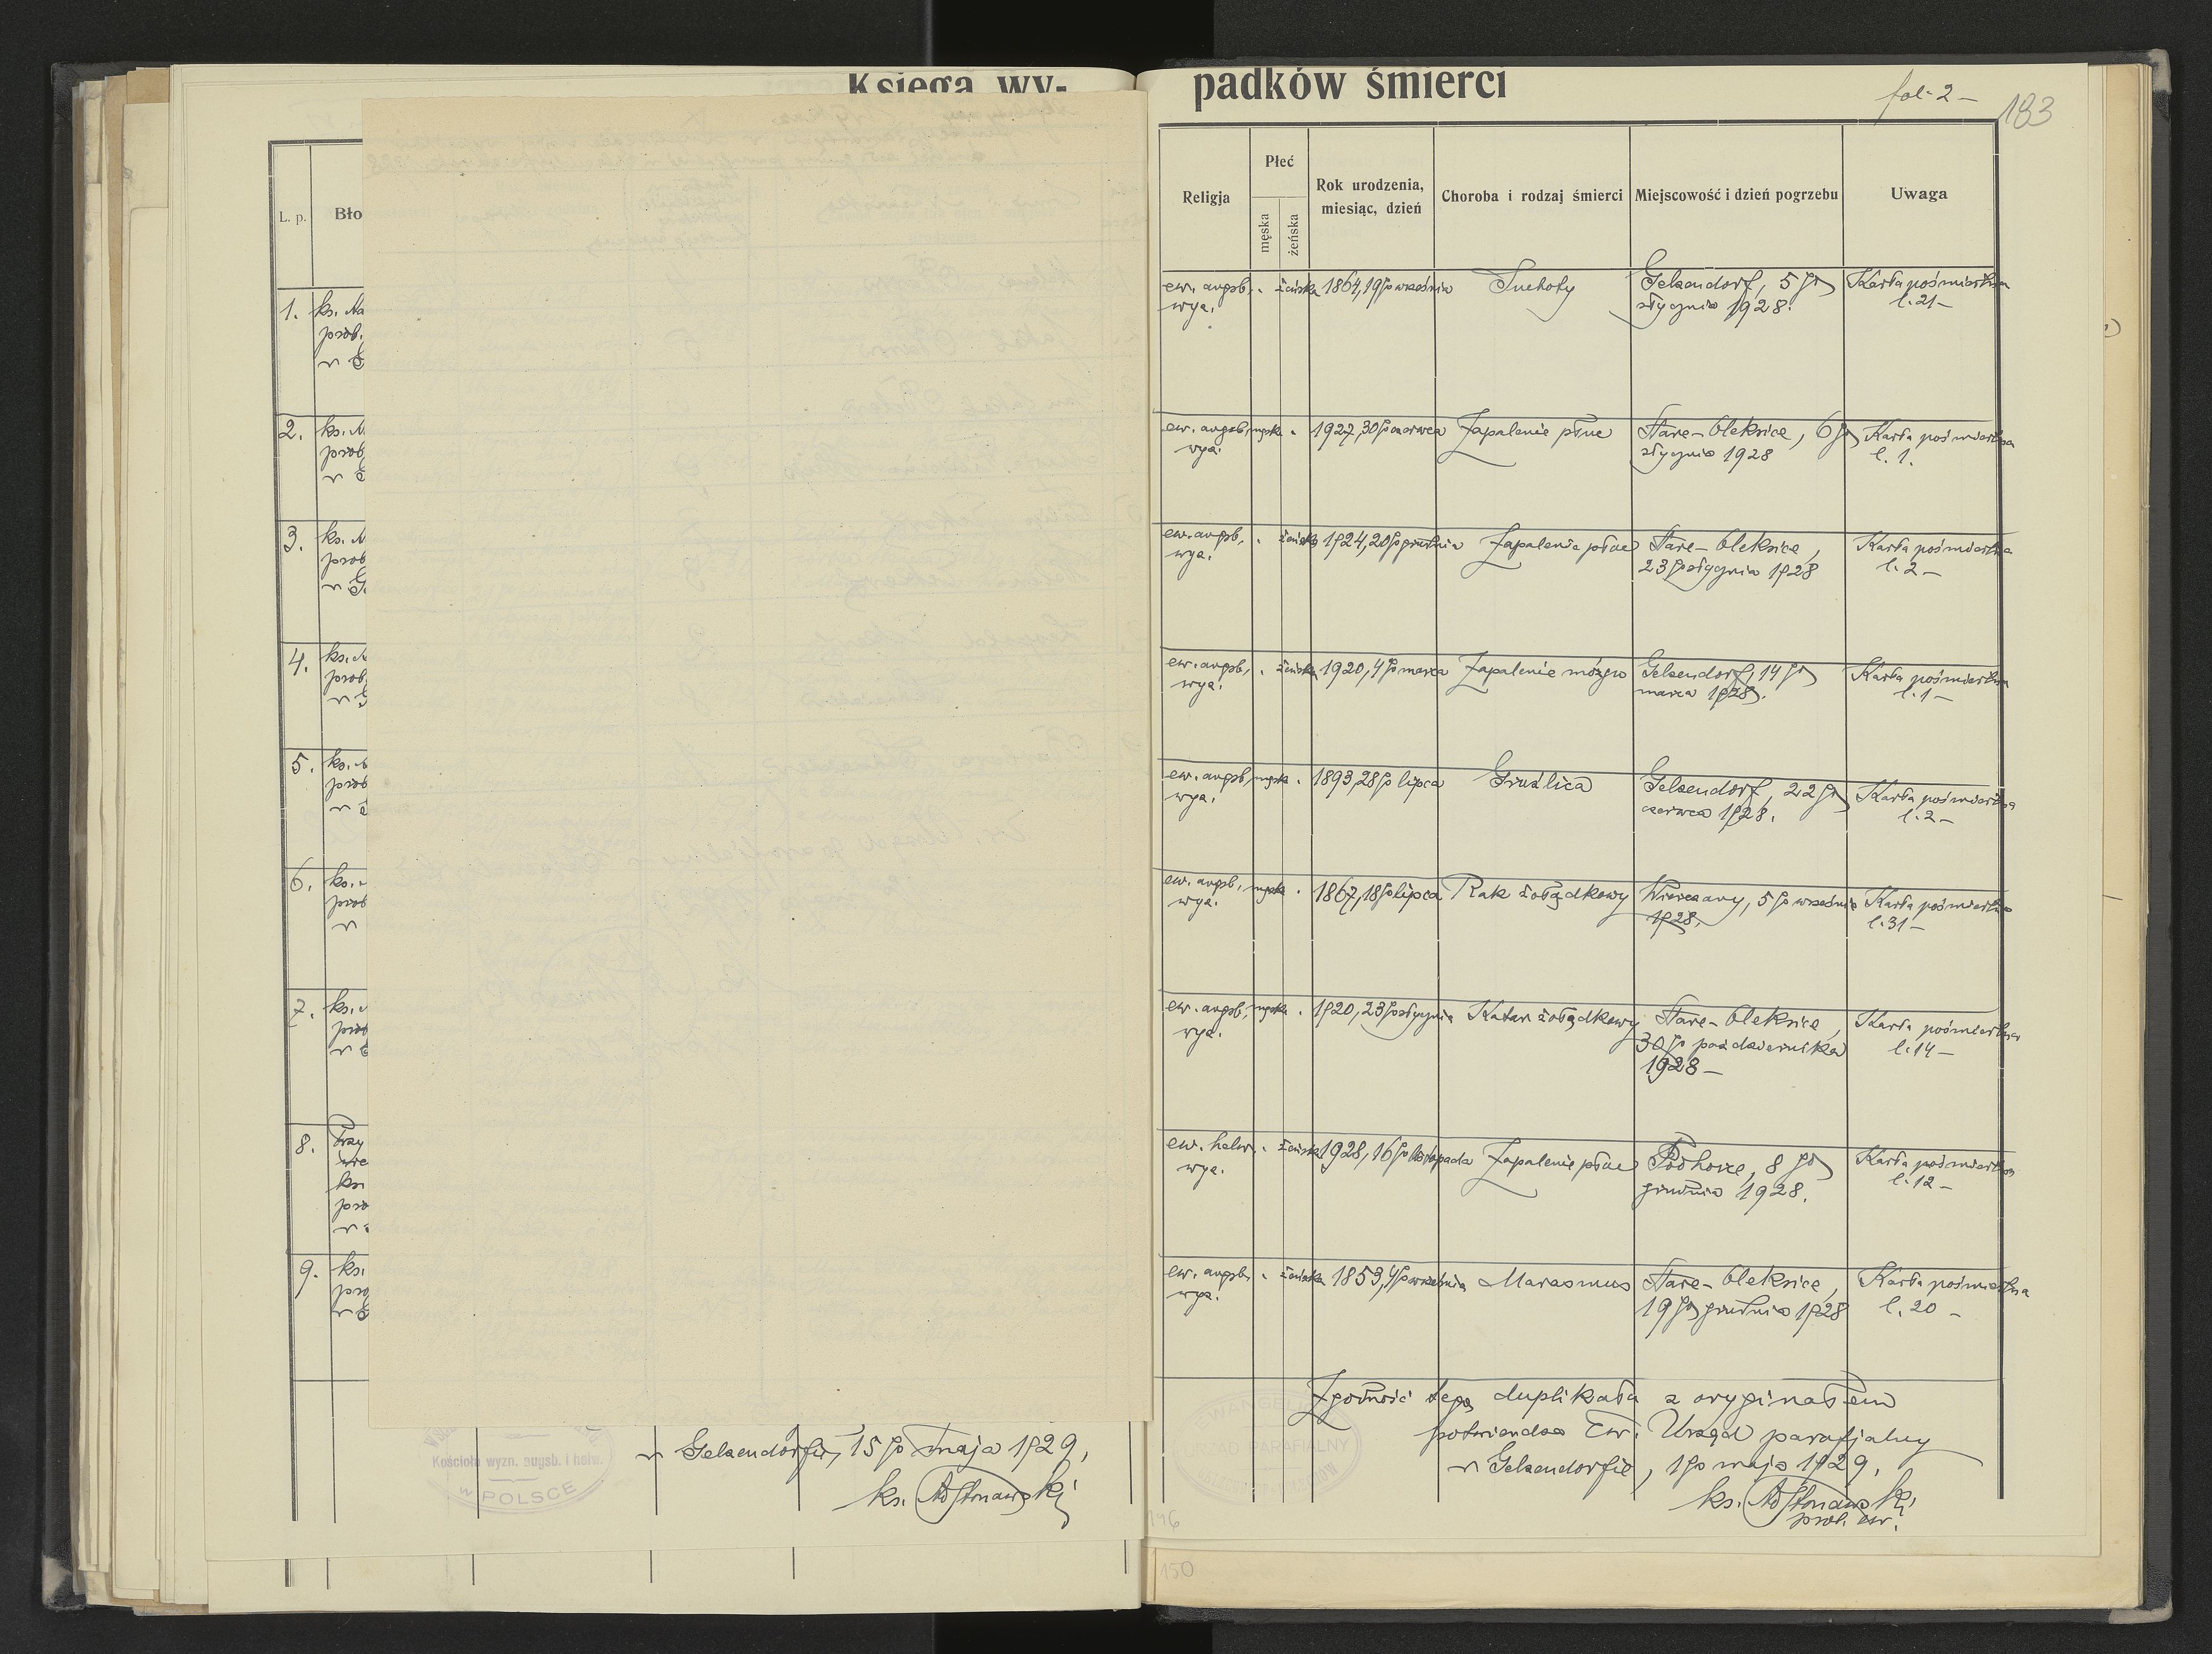 Księga wy-
padków śmierci
fol. 2 —
183
L. p.
Bło
1.
ks. Na
prob.
w G
2.
ks. N
prob
w G
3.
ks. N
prob
w G
4.
ks. N
prob.
w G
5.
ks. N
prob
w G
6.
ks.
prob
w
7.
ks. N
prob
w G
8.
Przy
wre
ks
pro
w
9.
ks.
pro
w G
Kościoła wyzn. augsb. i helw.
w POLSCE
w Gelsendorfie, 15go maja 1929,
Religja
Płeć
męska
żeńska
Rok urodzenia,
miesiąc, dzień
Choroba i rodzaj śmierci
Miejscowość i dzień pogrzebu
Uwaga
ew. augsb. . żeńska 1864, 19go września Suchoty Gelsendorf, 5go Karta pośmiertna
wyz. stycznia 1928. l. 21 —
ew. augsb. męska . 1927, 30go czerwca Zapalenie płuc Stare-Oleksice, 6go Karta pośmiertna
wyz. stycznia 1928 l. 1.
ew. augsb. . żeńska 1924, 20go grudnia Zapalenie płuc Stare-Oleksice, Karta pośmiertna
wyz. 23go stycznia 1928 l. 2 —
ew. augsb. . żeńska 1920, 4go marca Zapalenie mózgu Gelsendorf, 14go Karta pośmiertna
wyz. marca 1928. l. 1 —
ew. augsb. męska . 1893, 28go lipca Gruźlica Gelsendorf, 22go Karta pośmiertna
wyz. czerwca 1928. l. 2 —
ew. augsb. męska . 1867, 18go lipca Rak żołądkowy Wierczany, 5go września Karta pośmiertna
wyz. 1928, l. 31 —
ew. augsb. męska . 1920, 23go stycznia Katar żołądkowy Stare-Oleksice, Karta pośmiertna
wyz. 30go października l. 14 —
1928 —
ew. helw. . żeńska 1928, 16go listopada Zapalenie płuc Podhorce, 8go Karta pośmiertna
wyz. grudnia 1928. l. 12 —
ew. augsb. . żeńska 1853, 4go września Marasmus Stare-Oleksice, Karta pośmiertna
wyz. 19go grudnia 1928 l. 20 —
Zgodność tego duplikatu z oryginałem
potwierdza Ew. Urząd parafjalny
w Gelsendorfie, 1go maja 1929,
ks.
prob. ew.
URZĄD PARAFIALNY
146
150